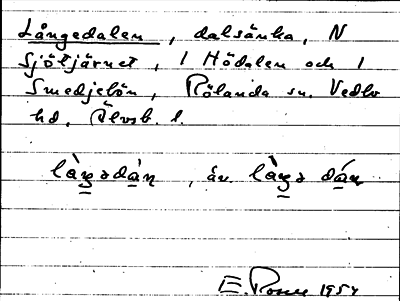 Långedalen, dalsänka, N
Sjötjärnet, i Hödalen och i
Smedjebön, Rölanda sn. Vedbo
hd, Älvsb. l.
làŋsdàn, äv. làŋs dán
E. 1954